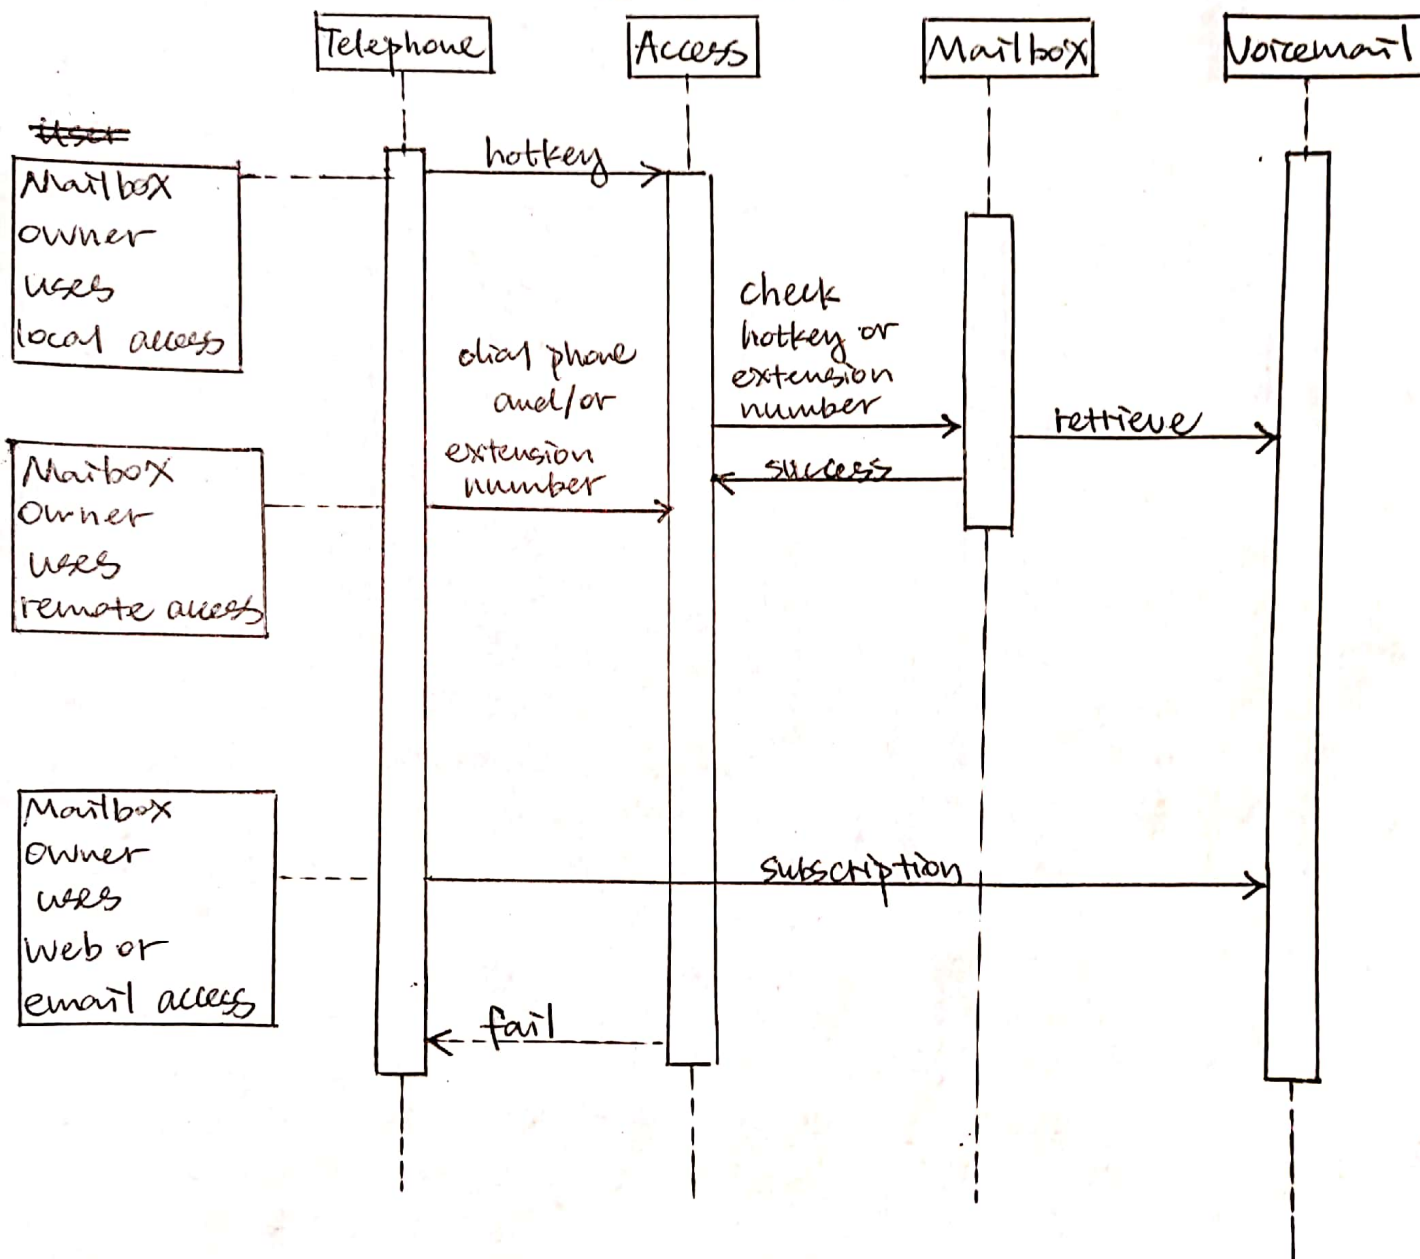 Telephone
Access
Mailbox
Voicemail
user
Mailbox
owner
uses
local access
hotkey
check
hotkey or
extension
number
dial phone
and/or
extension
number
retrieve
success
Maibox
Owner
uses
remote access
Mailbox
Owner
uses
Web or
email access
subscription
fail